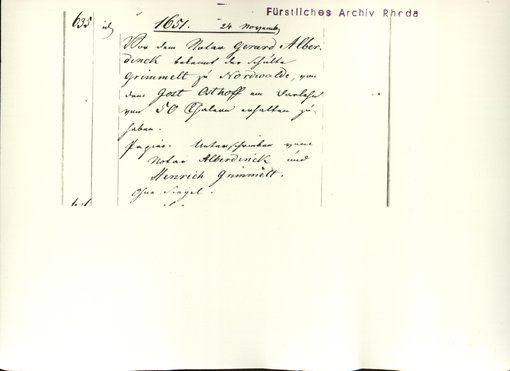 Fürstliches Archiv Rheda
635 1651. 24 November
Vor dem Notar Gerard Alber-
dinck bekennt der Schulte
Grimmelt zu Nordwalde, von
dem Jost Osthoff ein Darlehn
von 50 Thalern erhalten zu
haben.
Papier. Unterschrieben vom
Notar Alberdinck und
Henrich Grimmelt.
Ohne Siegel.